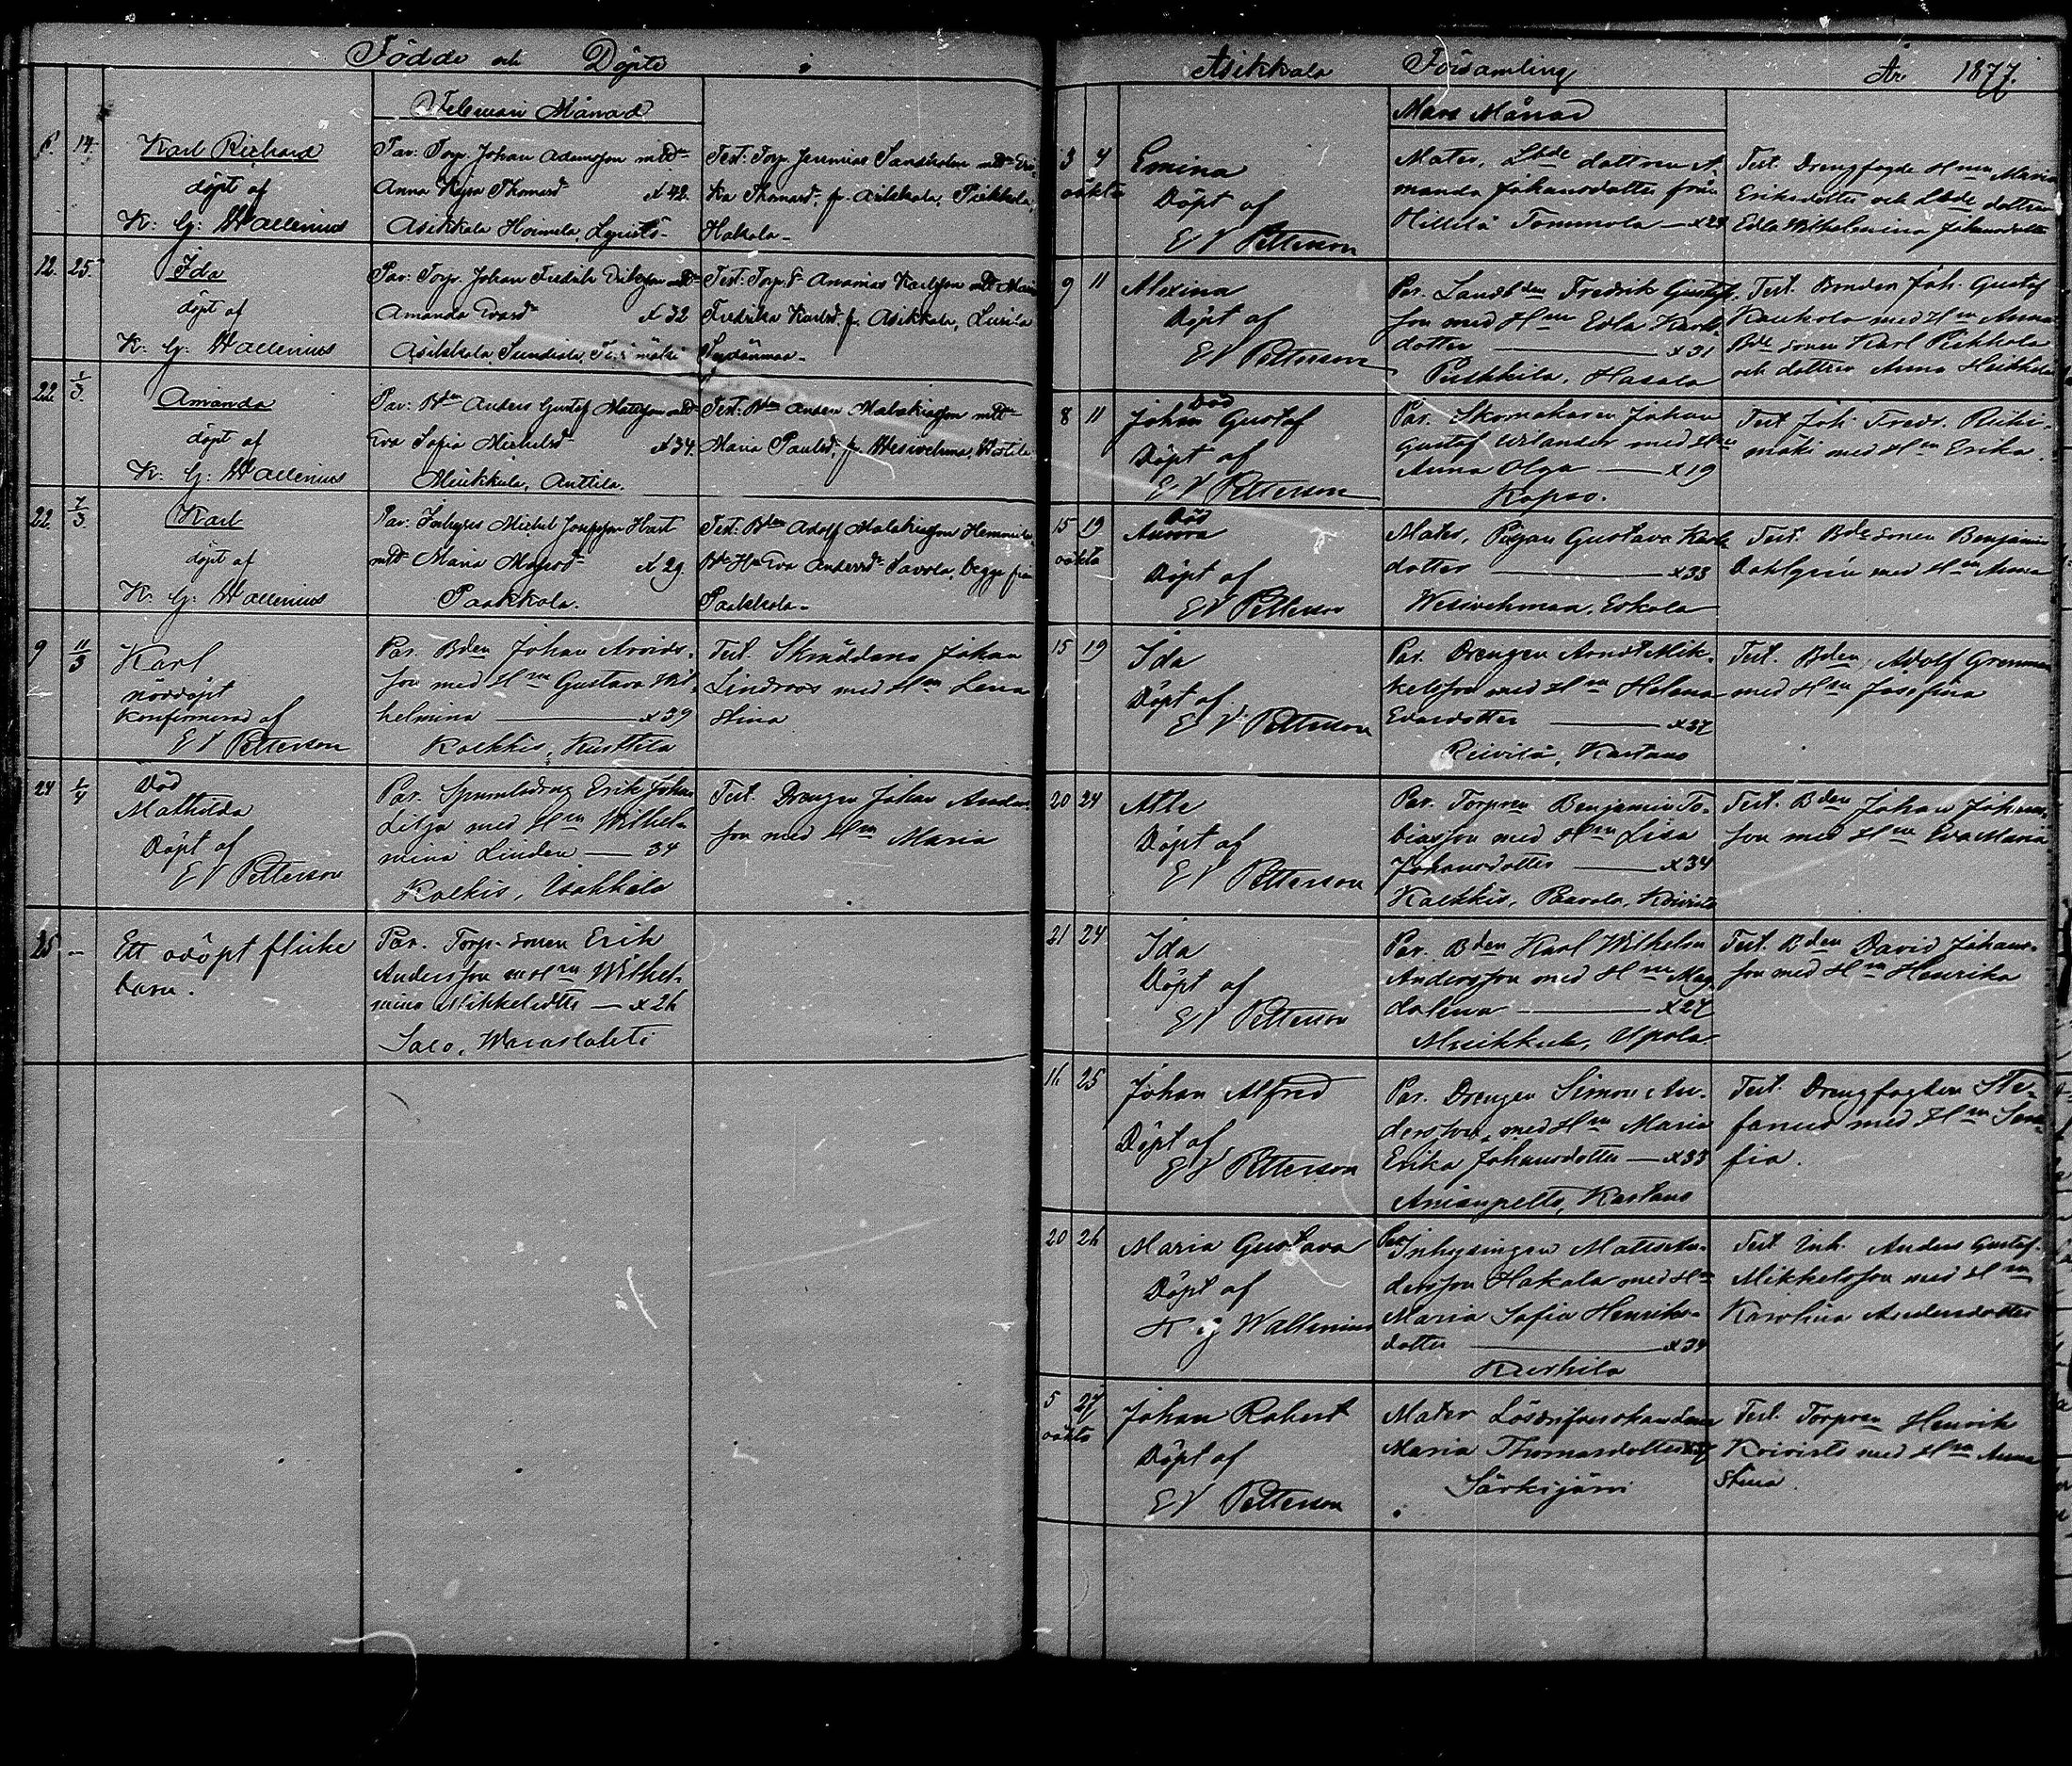 Födde och Döpte i
Februari Månad
6. 14. Karl Richard
döpt af
K: G: Wallenius
Par: Torp. Johan Adamsson md
Anna Kajsa Thomasd. x 42.
Asikkala
Test: Torp. Jeremias Sandholm md Eri-
ka Thomasd. fr. Asikkala,
Hakala
12. 25. Ida
döpt af
K: G: Wallenius
Par: Torp. Johan Fredrik Eriksson md
Amanda x 32
Asikkala
Test: Torp. Ananias Karlsson md Maria
Fredrika Karlsd. fr. Asikkala,
22. 1/3. Amanda
döpt af
K: G: Wallenius
Par: Bden Anders Gustaf Mattsson md
Eva Sofia Michelsd. x 34.
Anttila.
Test: Bden Anders Malakiasson md
Maria Paulsd. fr. Wesivehma,
22. 7/3. Karl
döpt af
K: G: Wallenius
Par: Inhyses Michel Josefsson
md Maria x 29.
Paakkola.
Test: Bden Adolf Malakiasson
Eva Andersd. Savola, begge från
Paakkola
9 11/3 Karl
nöddöpt
konfirmerad af
E V Petterson
Par. Bden Johan Arvids-
son med Hm Gustava Wil-
helmina x 39
Kalkkis, Kurttila
Test. Skräddaren Johan
Lindroos med Hm Lena
Stina
24 1/4 Död
Mathilda
Döpt af
E V Petterson
Par. Erik Johan
Lilja med Hm Wilhel-
mina Linden — 34
Kalkis,
Test. Drengen Johan Anders-
son med Hm Maria
25 — Ett odöpt flicke
barn.
Par. Torp. sonen Erik
Andersson m Hm Wilhel-
mina Mikkelsdtter — x 26
Salo,
Asikkala Församling År 1877.
Mars Månad
3 4 oäkta
Emina
Döpt af
E V Petterson
Mater, Lbde dottren A-
manda Johansdotter från
Hillilä Tommola — x 23
Test. Drengfogde Hmn Maria
Eriksdotter och Lbde dottren
Edla Wilhelmina Johansdotter
9 11 Alexina
Döpt af
E V Petterson
Par. Landbden Fredrik Gustafs-
son med Hm Edla Karls-
dotter — x 31
Pulkkila, Hasala
Test. Bonden Joh. Gustaf
Kaukola med Hm Anna
Bde sonen Karl Pekkola
och dottren Anna Heikkilä
8 11 Död
Johan Gustaf
Döpt af
E V Petterson
Par. Skomakaren Johan
Gustaf Wilander med Hm
Anna Olga — x 19
Kopso.
Test Joh. Fredr. Riihi-
mäki med Hm Erika.
15 19 oäkta
Död
Aurora
Döpt af
E V Petterson
Mater, Pigan Gustava Karls-
dotter — x 33
Wesivehmaa, Eskola
Test. Bde sonen Benjamin
Dahlgrén med Hm Anna
15 19 Ida
Döpt af
E V Petterson
Par. Drengen Mik-
kelsson med Hm Helena
Edvardsdotter — x 37
Reivilä, Kartano
Test. Bden Adolf
med Hm Josefina
20 24 Atte
Döpt af
E V Petterson
Par. Torparen Benjamin To-
biasson med Hm Lisa
Johansdotter — x 34
Kalkkis, Paavola, Koivisto
Test. Bden Johan Johans-
son med Hm Eva Maria
21 24 Ida
Döpt af
E V Petterson
Par. Bden Karl Wilhelm
Andersson med Hm Mag-
dalena — x 27
Upola
Test. Bden David Johans-
son med Hm Henrika
16 25 Johan Alfred
Döpt af
E V Petterson
Par. Drengen Simon An-
dersson, med Hm Maria
Erika Johansdotter — x 33
Anianpelto, Kartano
Test. Drengfogden Ste-
fanus med Hm
fia.
20 26 Maria Gustava
Döpt af
K G Wallenius
Par. Inhysingen Matts An-
dersson Hakala med Hm
Maria Sofia Henriks-
dotter — x 34
Kurhila
Test. Inh. Anders Gustaf
Mikkelsson med Hm
Karolina Andersdotter
5 27 oäkta
Johan Robert
Döpt af
E V Petterson
Mater Lösdrifverskan Lena
Maria Thomasdotter
Särkijärvi
Test. Torparen Henrik
Koivisto med Hm Anna
Stina.